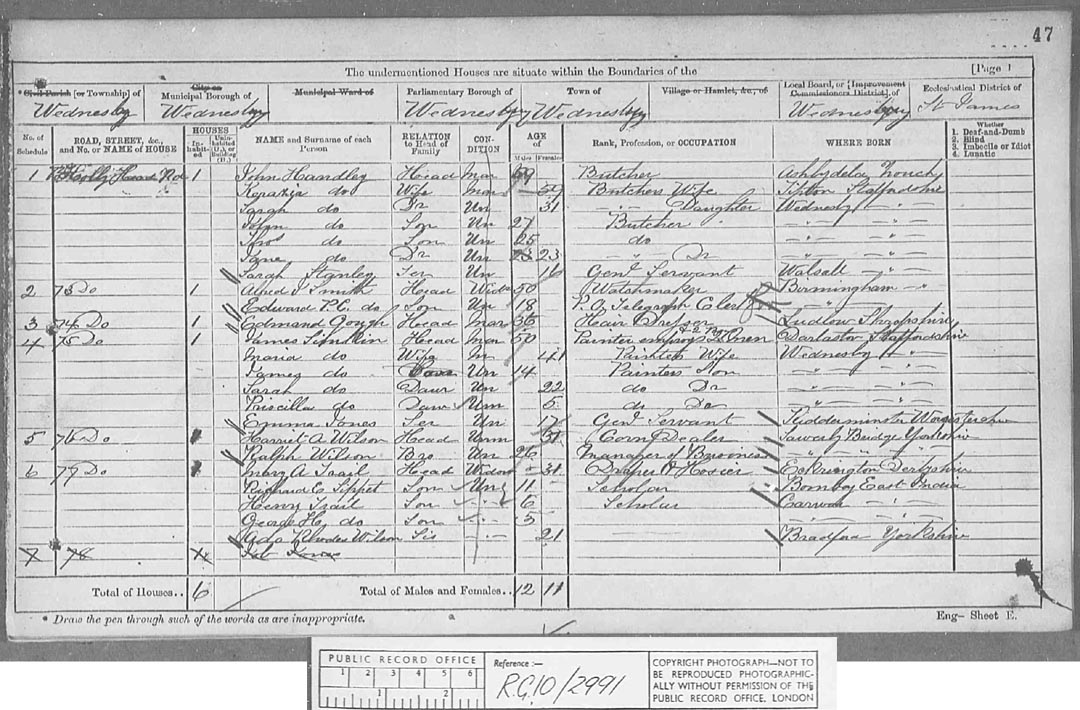 47
The undermentioned Houses are situate within the Boundaries of the [Page 1
* Civil Parish [or Township] of City or Municipal Borough of Municipal Ward of Parliamentary Borough of Town of Village or Hamlet, &c., of Local Board, or [Improvement Commissioners District] of Ecclesiastical District of
Wednesbury Wednesbury Wednesbury Wednesbury Wednesbury St James
No. of Schedule ROAD, STREET, &c., and No. or NAME of HOUSE HOUSES Inhabited Uninhabited (U.), or Building (B.) NAME and Surname of each Person RELATION to Head of Family CONDITION AGE of Males Females Rank, Profession, or OCCUPATION WHERE BORN Whether 1. Deaf-and-Dumb 2. Blind 3. Imbecile or Idiot 4. Lunatic
1 Holly Head Rd 1 John Handley Head Mar 59 Butcher Ashby dela Zouch
Keziah do Wife Mar 59 Butchers Wife Tipton Staffordshire
Sarah do Dr Un 31 " Daughter Wednesbury " "
John do Son Un 27 Butcher " " "
Thos do Son Un 25 do " " "
Jane do Dr Un 23 " " Dr " " "
Sarah Stanley Ser Un 16 Genl Servant Walsall " "
2 73 Do 1 J Smith Head 50 Watchmaker Birmingham "
Edward P.C. do Son Un 18 P.O. Telegraph Clerk " "
3 74 Do 1 Edmund Gough Head Mar 36 Ludlow Shropshire
4 75 Do 1 James Head Mar 50 Painter Darlaston Staffordshire
Maria do Wife M 41 Painters Wife Wednesbury " "
James do Un 14 Painters Son " " "
Sarah do Daur Un 22 do Dr " " "
Priscilla do Daur Unm 5 do Dr " " "
Emma Jones Ser Un 17 Genl Servant Kidderminster Worcestershire
5 76 Do Harriet A Wilson Head Unm 31 Corn Dealer Sowerby Bridge Yorkshire
Ralph Wilson Bro Un 26 Manager of " " "
6 77 Do Mary A Trail Head Widow 31 Draper & Hosier Eckington Derbyshire
Richard E Tippet Son Un 11 Scholar Bombay East India
Henry Trail Son " 6 Scholar "
George H. do Son " 3 " " "
Ada Rhodes Wilson Sis " 21 Bradford Yorkshire
7 78 1
Total of Houses.. 6 Total of Males and Females.. 12 11
* Draw the pen through such of the words as are inappropriate. a Eng- Sheet E.
PUBLIC RECORD OFFICE
1 2 3 4 5 6
1 2
Reference :-
R.G.10/2991
COPYRIGHT PHOTOGRAPH—NOT TO
BE REPRODUCED PHOTOGRAPHIC-
ALLY WITHOUT PERMISSION OF THE
PUBLIC RECORD OFFICE, LONDON